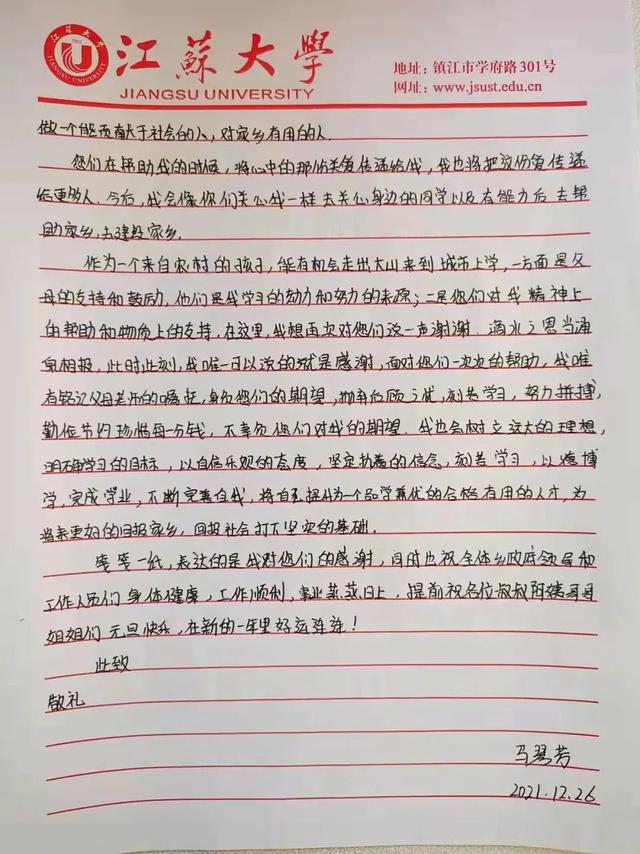 江蘇大學
JIANGSU UNIVERSITY
地址：镇江市学府路301号
网址：www.jsust.edu.cn
做一个能贡献于社会的人，对家乡有用的人.
您们在帮助我的时候，将心中的那份关爱传递给我，我也将把这份爱传递
给更多人. 今后，我会像你们关心我一样去关心身边的同学以及有能力后去帮
助家乡，去建设家乡.
作为一个来自农村的孩子，能有机会走出大山来到城市上学，一方面是父
母的支持和鼓励，他们是我学习的动力和努力的来源；二是您们对我精神上
的帮助和物质上的支持. 在这里，我想再次对您们说一声谢谢. 滴水之恩当涌
泉相报，此时此刻，我唯一可以说的就是感谢，面对您们一次次的帮助，我唯
有铭记父母老师的嘱托，身负您们的期望，抛弃后顾之忧，刻苦学习，努力拼搏，
勤俭节约珍惜每一分钱，不辜负您们对我的期望. 我也会树立远大的理想，
明确学习的目标，以自信乐观的态度，坚定执着的信念，刻苦学习，以德博
学，完成学业，不断完善自我，将自己提升为一个品学兼优的合格有用的人才，为
将来更好的回报家乡，回报社会打下坚实的基础.
寥寥一纸，表达的是我对您们的感谢，同时也祝全体乡政府领导和
工作人员们身体健康，工作顺利，事业蒸蒸日上，提前祝各位叔叔阿姨哥哥
姐姐们元旦快乐，在新的一年里好运连连！
此致
敬礼
马琴芳
2021.12.26